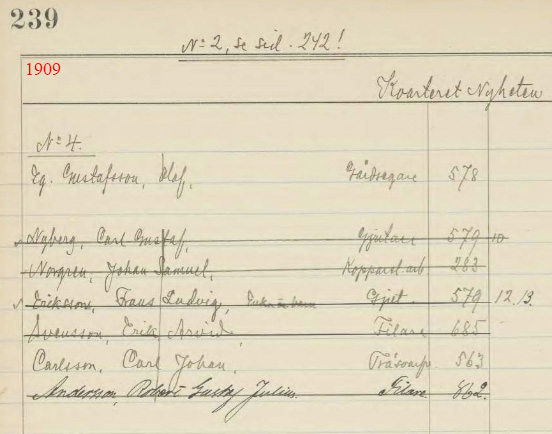 239
No 2, se sid. 242!
1909
Kvarteret Nyheten
No 4.
Eg. Gustafsson, Olof, Gårdsegare 578
Nyberg, Carl Gustaf, Gjutare 579 10
Norgren, Johan Samuel, Kopparsl arb 283
Eriksson, Frans Ludvig, Gjut 579 12.13.
Svensson, Erik Arvid, Filare 685
Carlsson, Carl Johan, 563
Andersson, Robert Gustaf Julius. Filare 862.